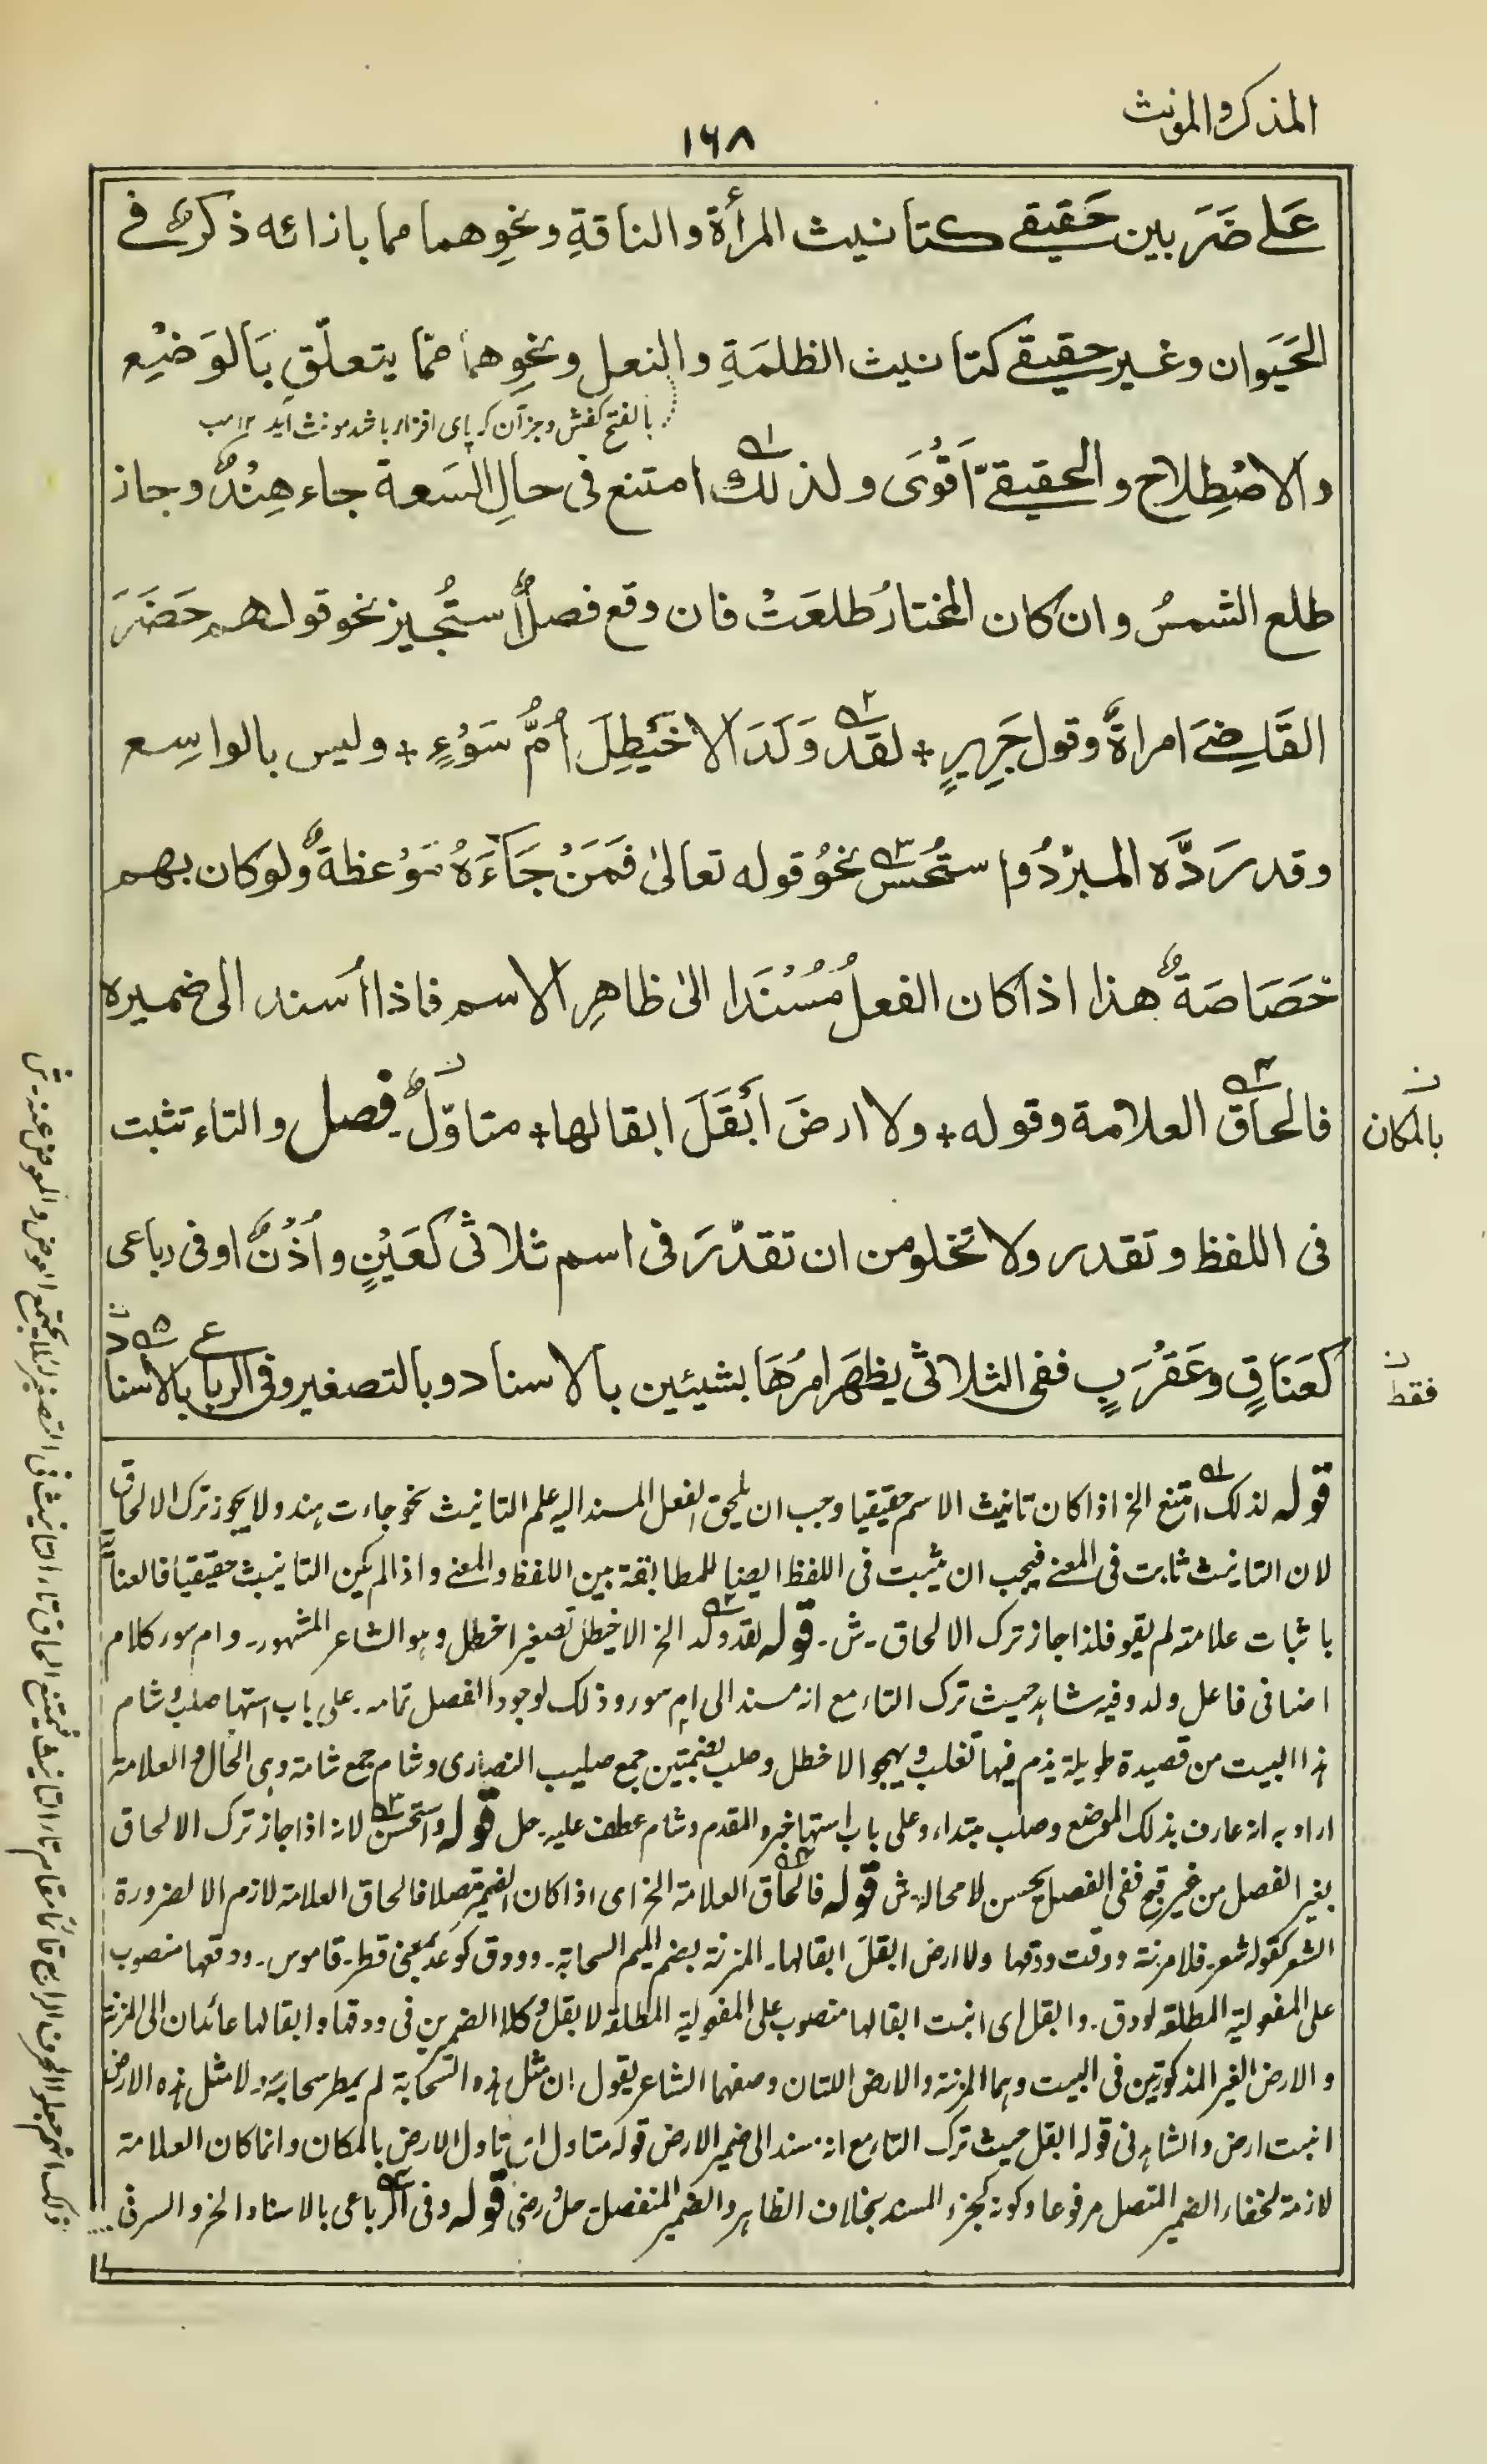 المذكر والمونث
١٦٨
عَلى ضَرَبين حَقيقي كتانيث المرأة والناقةِ ونحوِهما مما بازائه ذكرٌ في
الحَيَوان وغير حقيقي كتانيث الظلمَةِ والنعل ونحوِهما ممّا يتعلّق بَالوَضْعِ
بالفتح كفش وجز آن كہ پای افزار باشد مونث آید ١٢
والاصْطِلاح والحقيقيّ اَقْوَى ولذلك امتنع فى حالِ السَعة جاء هِنْدٌ وجاز
طلع الشمسُ وان كان المختارُ طلعَتْ فان وقع فصلٌ اُستُجيز نحو قولهم حَضَرَ
القَاضِيَ امراةٌ وقول جَرِيرٍ + لقد وَلَدَ الاخَيْطِلَ اُمُّ سَوْءٍ + وليس بالواسِع
وقد رَدَّه المبرّدُ واستُحْسن نحوُ قوله تعالىٰ فَمَنْ جَآءَهُ مَوْعظةٌ ولو كان بهم
خَصَاصَةٌ هذا اذا كان الفعلُ مُسْنَدا الىٰ ظاهِرِ الاسم فاذا اُسند الى ضميره
فالحاق العلامة وقوله + ولا ارضَ اَبْقَلَ ابقالها + متاوّلٌ فصل والتاء تثبت
بالمكان
فى اللفظ وتقدر ولا تخلو من ان تقدّرَ فى اسم ثلاثى كعَيْنٍ واُذُنٌ او فى رباعى
كعَنَاقٍ وعَقْرَبٍ ففى الثلاثى يظهَر امرُهَا بشيئين بالاسناد وبالتصغير وفى الرباعى بالاسناد
فقط
قوله لذلك امتنع الخ اذا كان تانيث الاسم حقيقيا وجب ان يلحق الفعل المسند اليه علم التانيث نحو جاءت هند ولا يجوز ترك الالحاق
لان التانيث ثابت فى المعنے فيجب ان يثبت فى اللفظ ايضا للمطابقة بين اللفظ والمعنے واذا لم يكن التانيث حقيقيا فالعناية
باثبات علامته لم يقو فلذا جاز ترك الالحاق ـ ش ـ قوله لقد ولد الخ الاخيطل تصغير اخطل وهو الشاعر المشهور ـ وام سوء كلام
اضافى فاعل ولد وفيه شاهد حيث ترك التاء مع انه مسند الى ام سوء وذلك لوجود الفصل تمامه ـ على باب استها صلب وشام
هذا البيت من قصيدة طويلة يذم فيها تغلب ويهجو الاخطل وصلب بضمتين جمع صليب النصارى وشام جمع شامة وهى الخال والعلامة
اراد به انه عارف بذلك الموضع وصلب مبتداء وعلى باب استها خبره المقدم وشام عطف عليه ـ حل قوله واستحسن لانه اذا جاز ترك الالحاق
بغير الفصل من غير قبح ففى الفصل يحسن لا محالة ـ ش قوله فالحاق العلامة الخ اى اذا كان الضمير متصلا فالحاق العلامة لازم الا لضرورة
الشعر كقوله شعر ـ فلا مزنة ودقت ودقها ولا ارض ابقل ابقالها ـ المزنة بضم الميم السحابة ـ وودق كوعد بمعنى قطر ـ قاموس ـ وودقها منصوب
على المفعولية المطلقة لودق ـ وابقل اى انبت ابقالها منصوب على المفعولية المطلقة لابقل وكلا الضميرين فى ودقها وابقالها عائدان الى المزنة
والارض الغير المذكورتين فى البيت وهما المزنة والارض اللتان وصفهما الشاعر يقول ان مثل هذه السحابة لم يمطر سحابة ولا مثل هذه الارض
انبت ارض والشاهد فى قوله ابقل حيث ترك التاء مع انه مسند الى ضمير الارض قوله متاول اى تاول الارض بالمكان وانما كان العلامة
لازمة لخفاء الضمير المتصل مرفوعا وكونه كجزء المسند بخلاف الظاهر والضمير المنفصل ـ حل رضى قوله وفى الرباعى بالاسناد الخ والسر فى
ذلك انهم جعلوا الحرف الرابع قائما مقام تاء التانيث فيمتنع الحاق تاء التانيث فى التصغير لئلا يجتمع العوض والمعوض عنه ـ ش